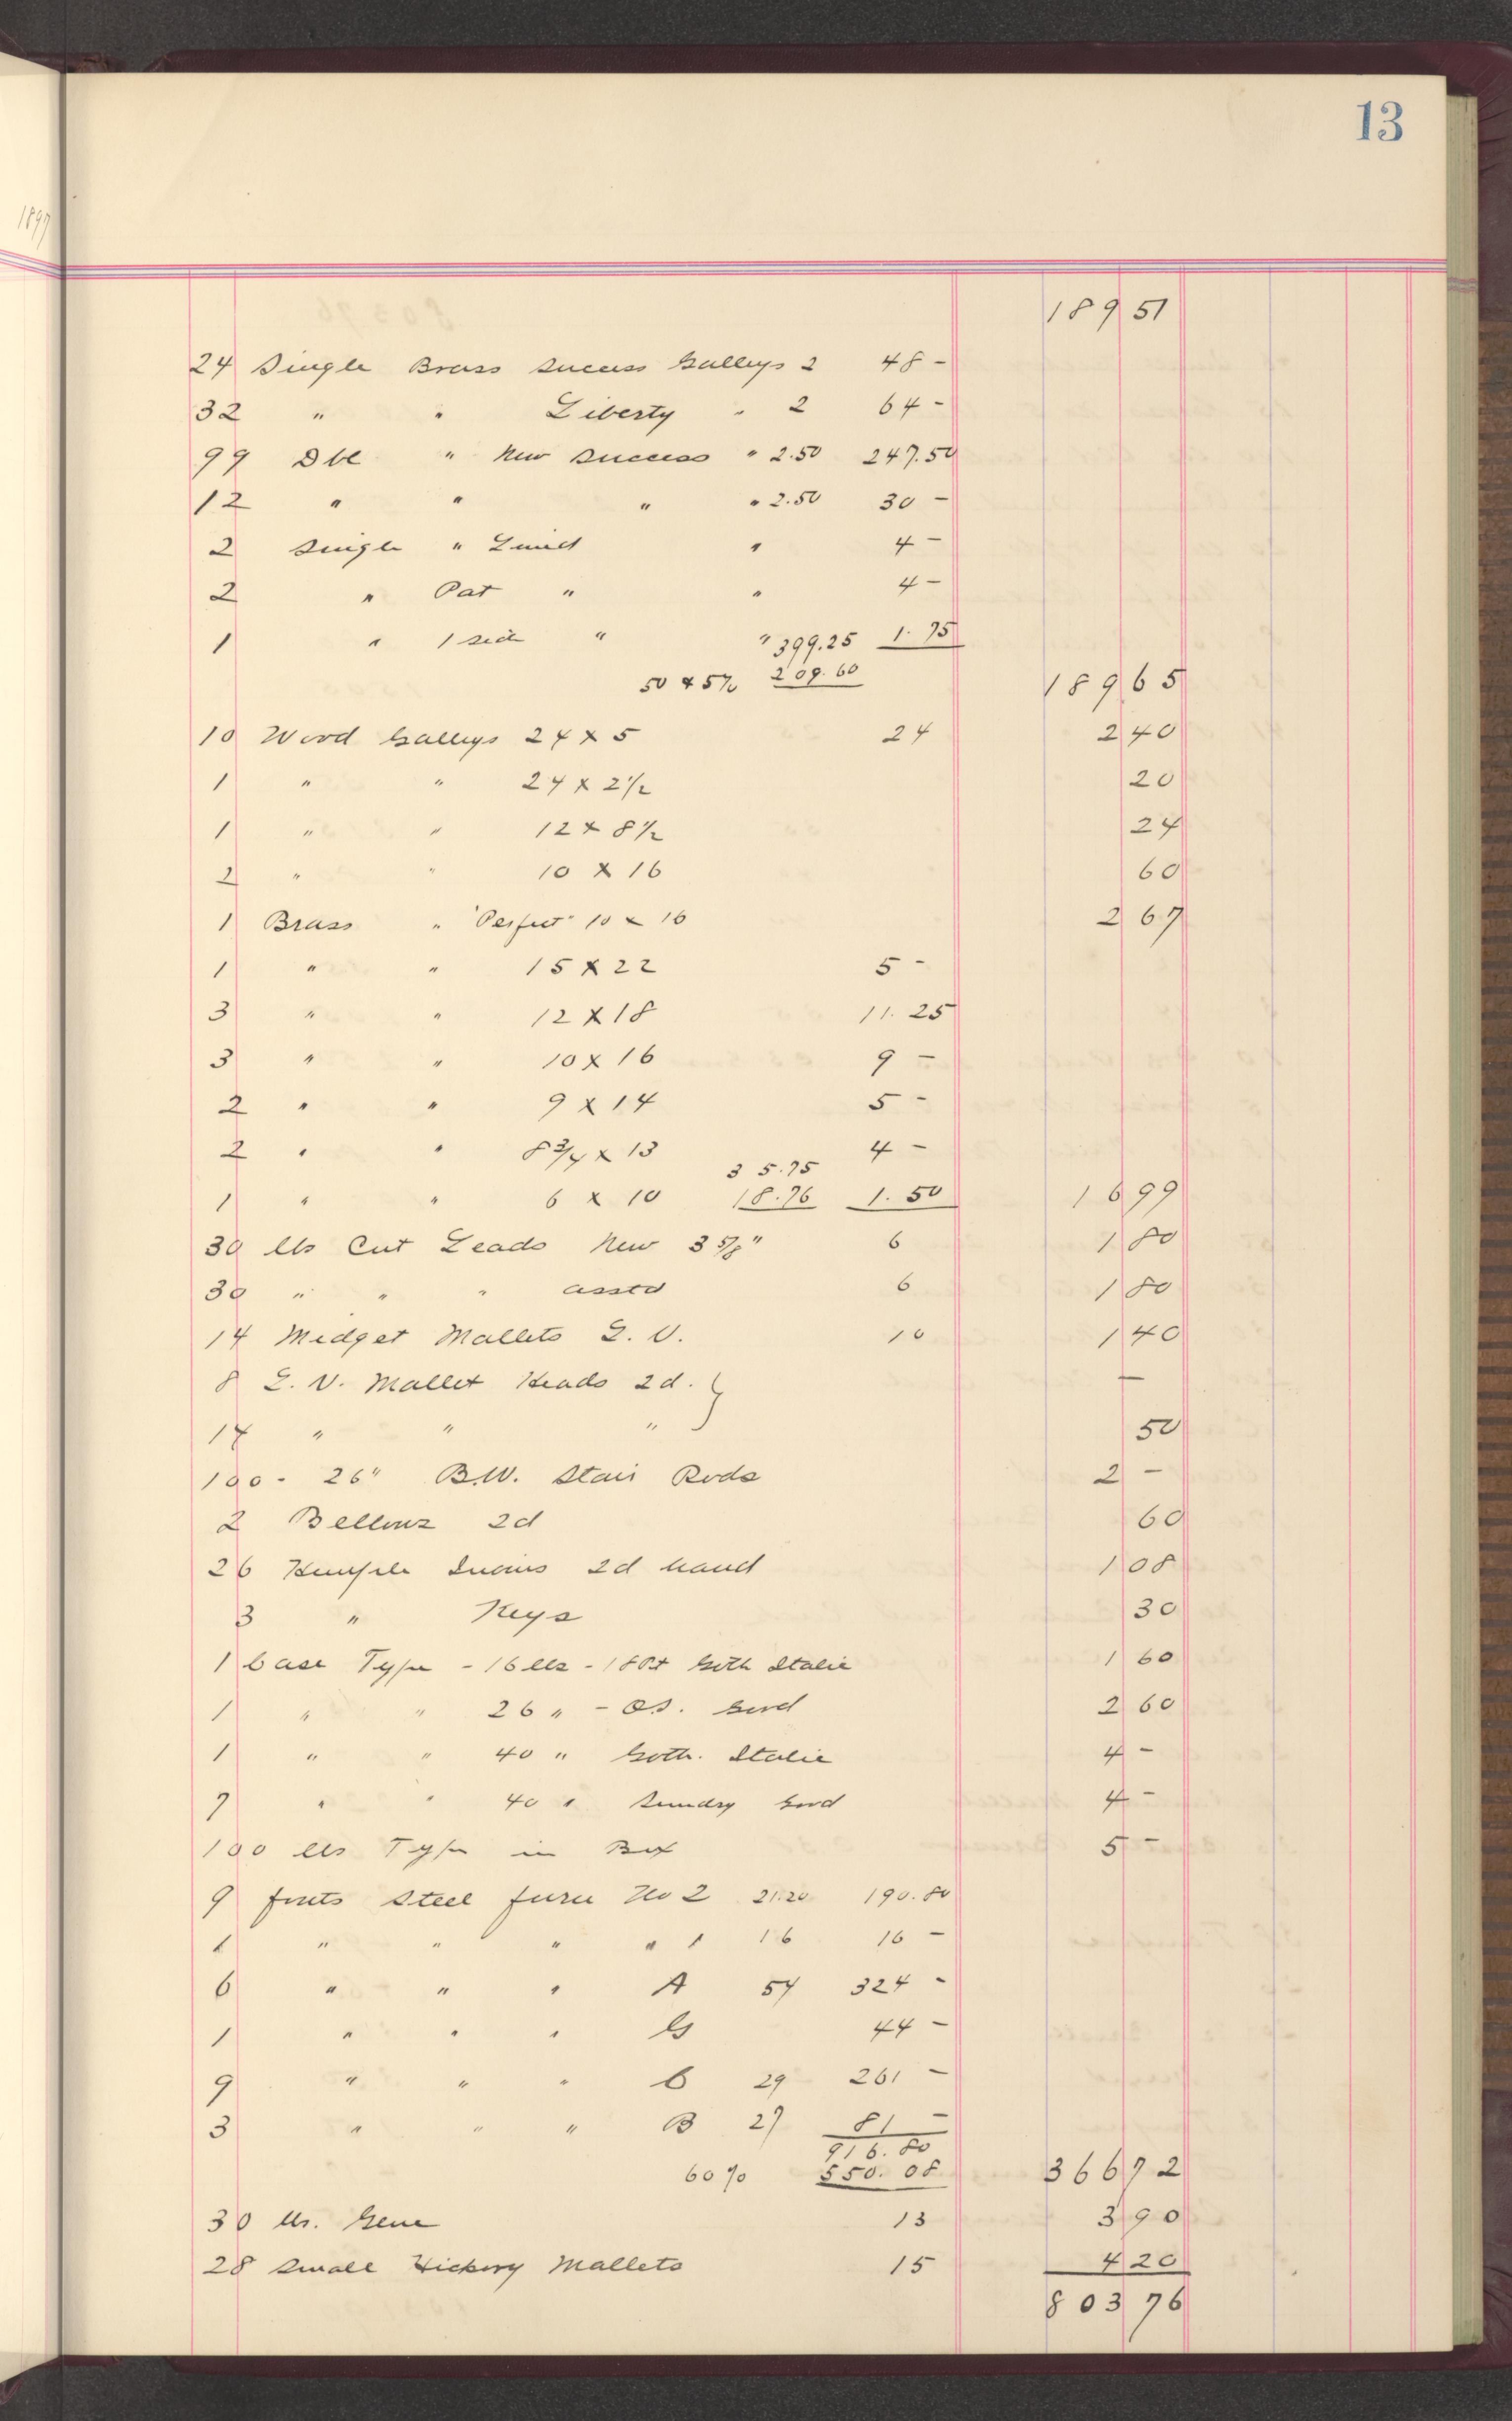 13
1897
189 51
24 Single Brass Success Galleys 2 48 -
32 " " Liberty " 2 64 -
99 Dbl " New Success " 2.50 247.50
12 " " " " 2.50 30 -
2 Single " Lined " 4 -
2 " Pat " " 4 -
1 " 1 side " " 399.25 1.75
50 & 5% 209.60 189 65
10 Wood Galleys 24 x 5 24 2 40
1 " " 24 x 2 1/2 20
1 " " 12 x 8 1/2 24
2 " " 10 x 16 60
1 Brass " "Perfect" 10 x 16 2 67
1 " " 15 x 22 5 -
3 " " 12 x 18 11.25
3 " " 10 x 16 9 -
2 " " 9 x 14 5 -
2 " " 8 3/4 x 13 4 -
35.75
1 " " 6 x 10 18.76 1.50 16 99
30 lbs Cut Leads New 3 5/8" 6 1 80
30 " " " asstd 6 1 80
14 Midget Mallets L. V. 10 1 40
8 L. V. Mallet Heads 2d. } -
14 " " " 50
100 - 26" B.W. Stair Rods 2 -
2 Bellows 2d 60
26 Hempele Quoins 2d hand 1 08
3 " Keys 30
1 Case Type - 16 lbs - 18 Pt Goth Italic 1 60
1 " " 26 " - O.S. Good 2 60
1 " " 40 " Goth. Italic 4 -
7 " " 40 " Sundry Good 4 -
100 lbs Type in Box 5 -
9 fonts Steel furn No 2 21.20 190.80
1 " " " " 1 16 16 -
6 " " " A 54 324 -
1 " " " G 44 -
9 " " " C 29 261 -
3 " " " B 27 81 -
916.80
60% 550.08 366 72
30 lbs. Gem 13 3 90
28 Small Hickory Mallets 15 4 20
803 76